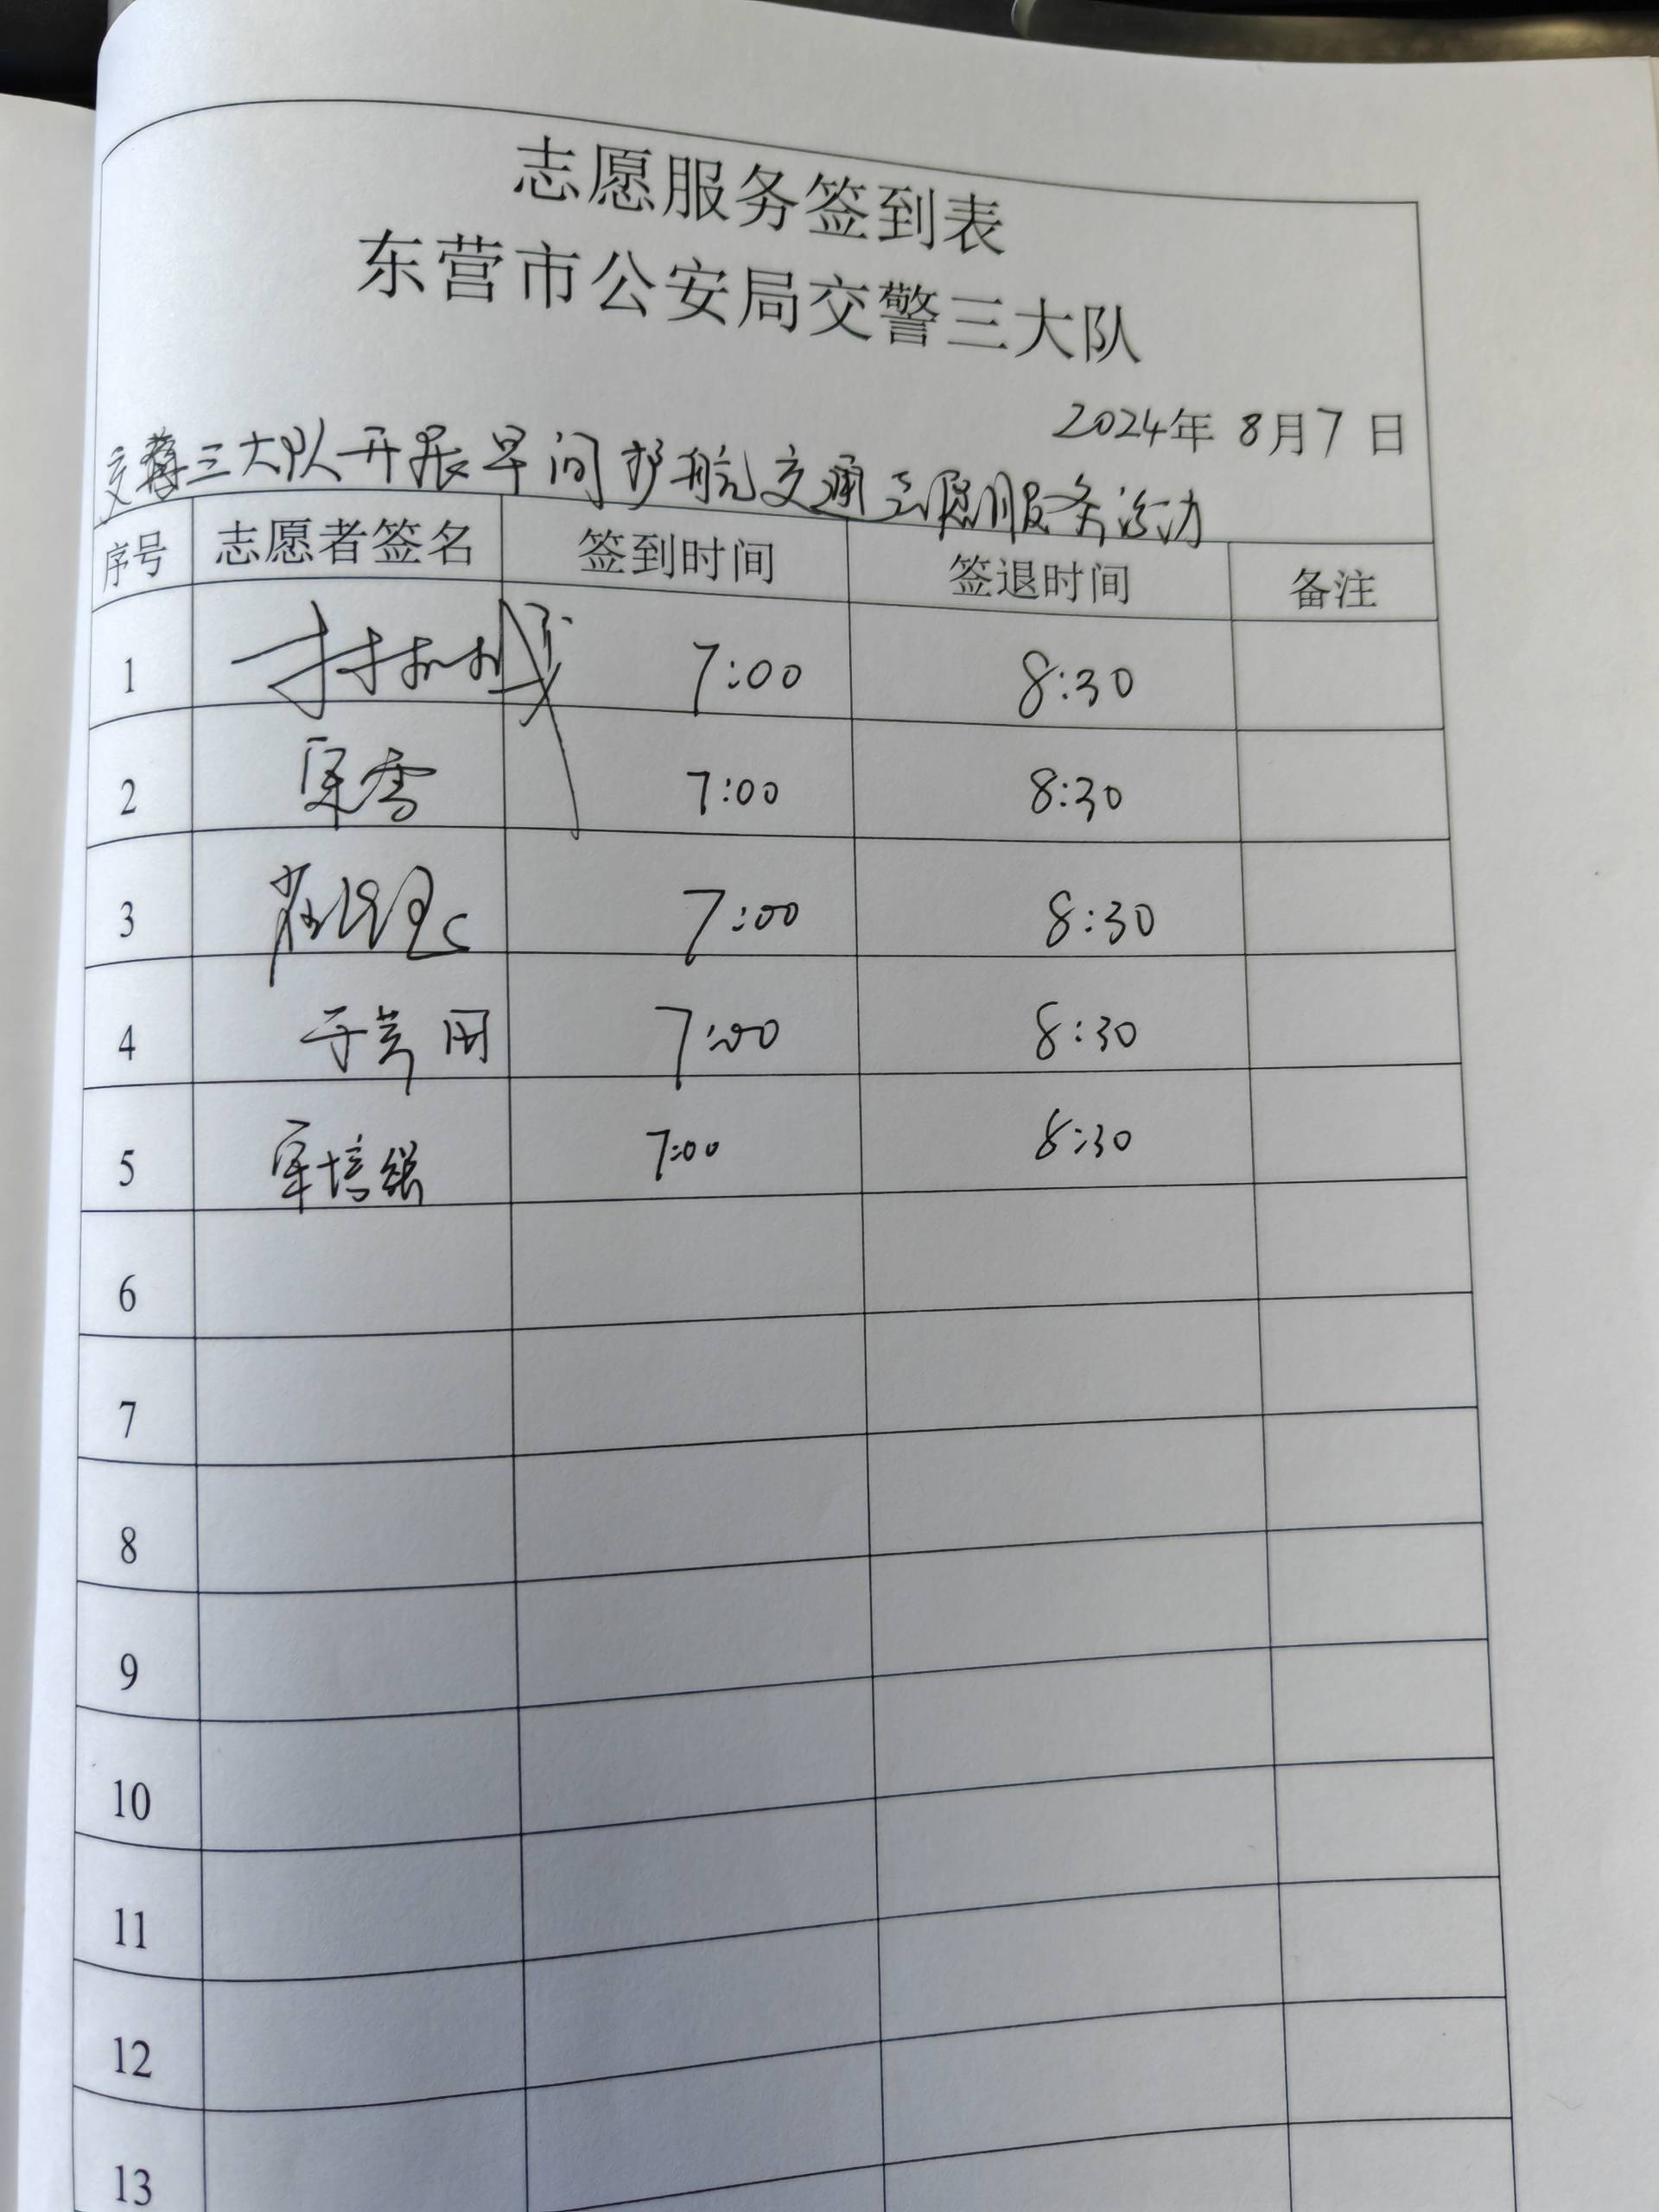 志愿服务签到表
东营市公安局交警三大队
2024年 8月7日
交警三大队开展早间护航交通志愿服务活动
序号 志愿者签名 签到时间 签退时间 备注
1 7:00 8:30
2 7:00 8:30
3 7:00 8:30
4 7:00 8:30
5 7:00 8:30
6
7
8
9
10
11
12
13